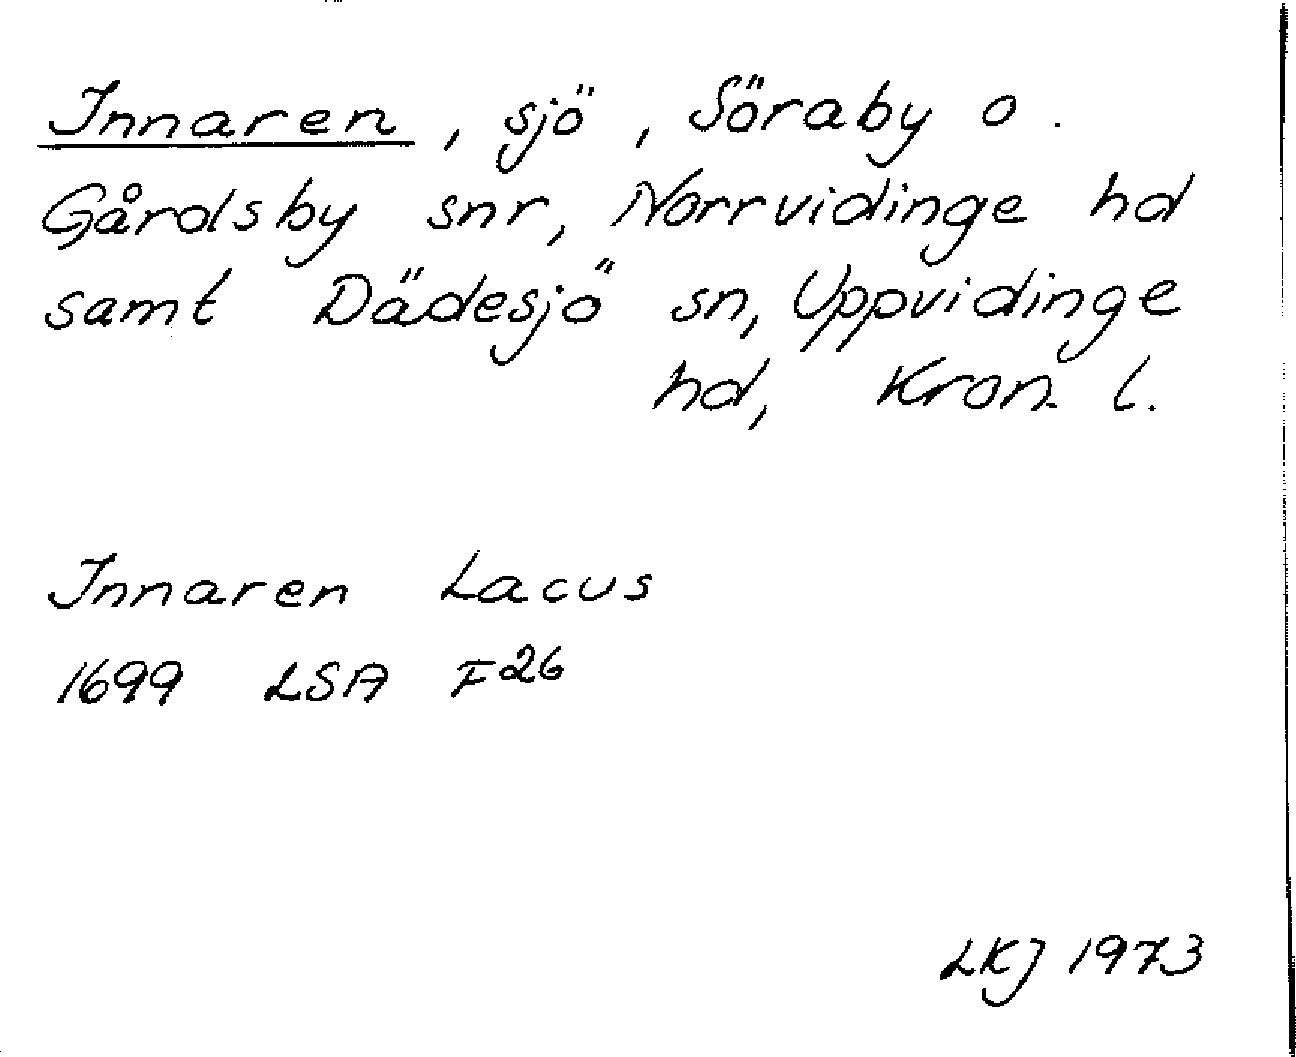 Innaren, sjö, Söraby o.
Gårdsby snr, Norrvidinge hd
samt Dädesjö sn, Uppvidinge
hd, Kron. l.
Innaren Lacus
1699 LSA F26
LKJ 1973